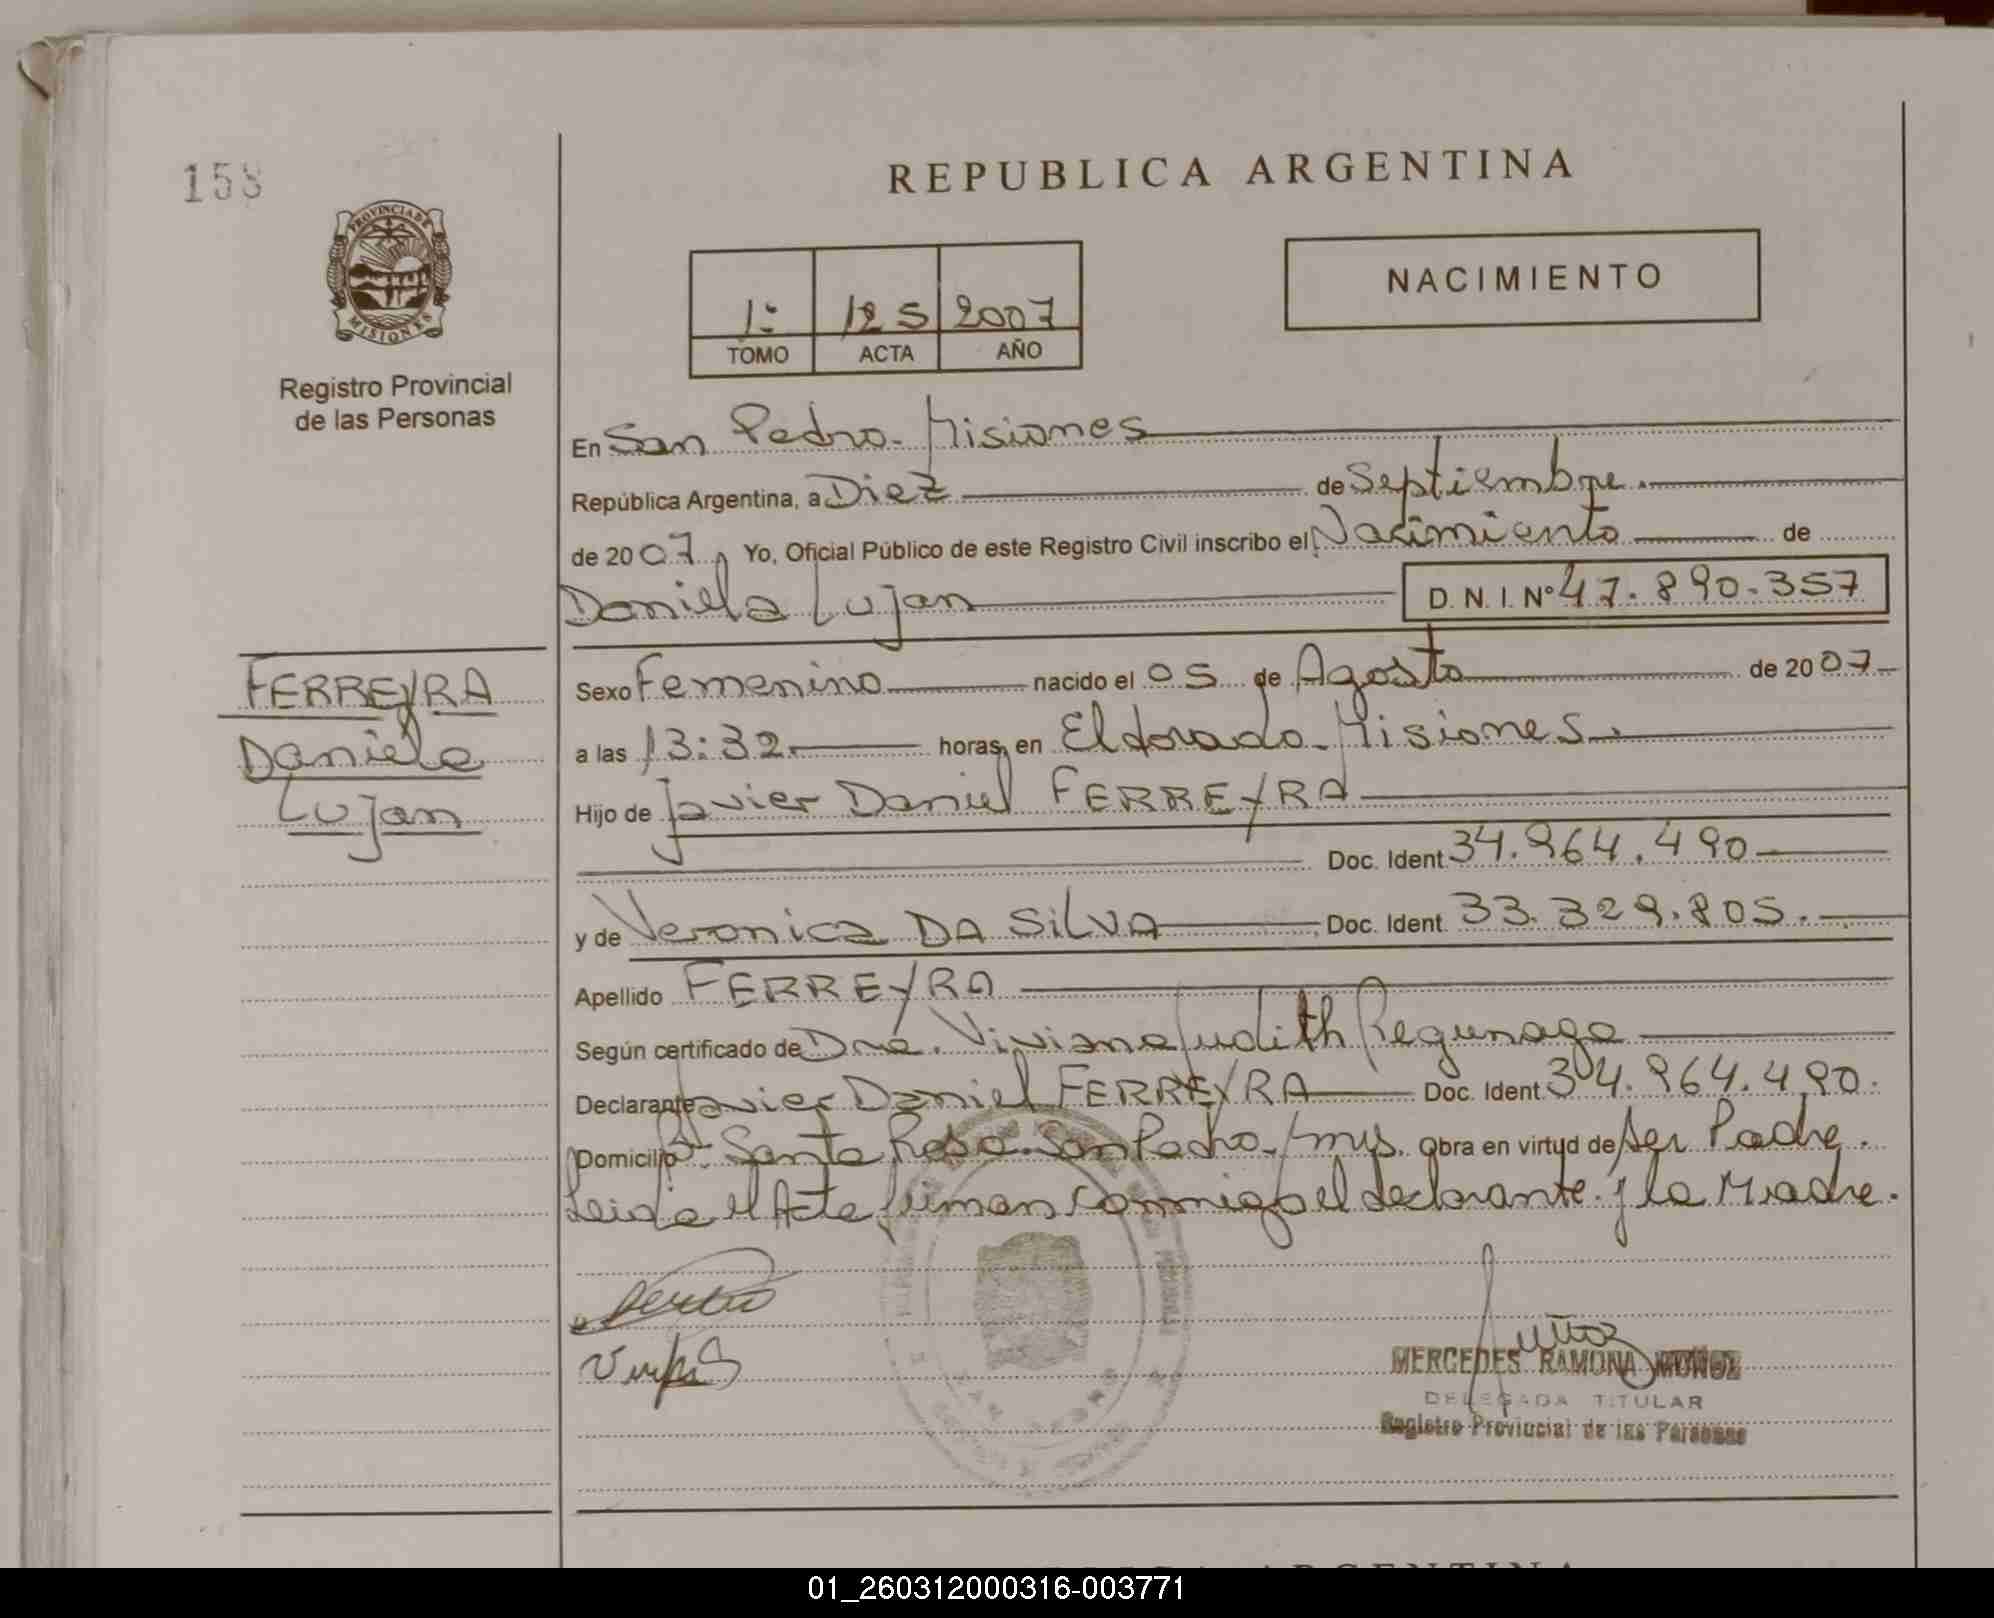 158
REPUBLICA ARGENTINA
PROVINCIA DE
MISIONES
Registro Provincial
de las Personas
1: 125 2007
TOMO ACTA AÑO
NACIMIENTO
En San Pedro - Misiones
República Argentina, a Diez de Septiembre.
de 2007, Yo, Oficial Público de este Registro Civil inscribo el Nacimiento de
Daniela Lujan D. N. I. Nº 47.890.357
FERREYRA
Daniela
Lujan
Sexo Femenino nacido el 05 de Agosto de 2007
a las 13:32 horas, en Eldorado - Misiones.
Hijo de Javier Daniel FERREYRA
Doc. Ident. 34.964.490
y de Veronica DA SILVA Doc. Ident. 33.329.805.
Apellido FERREYRA
Según certificado de Dra. Viviana Judith Regunaga
Declarante Javier Daniel FERREYRA Doc. Ident. 34.964.490.
Domicilio Santa Rosa. San Pedro - Mns. Obra en virtud de ser Padre.
Leida el Acta firman conmigo el declarante y la Madre.
Muñoz
MERCEDES RAMONA MUÑOZ
DELEGADA TITULAR
Registro Provincial de las Personas
01_260312000316-003771